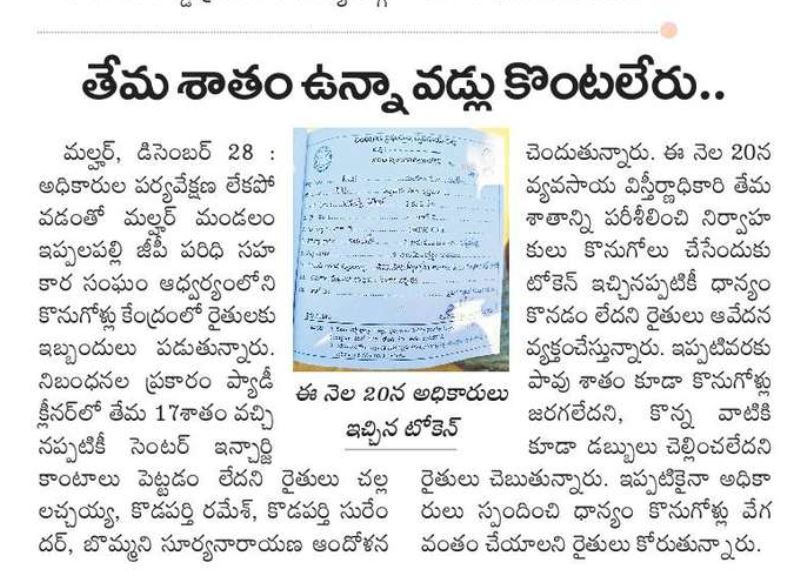 తేమ శాతం ఉన్నా వడ్లు కొంటలేరు..
మల్హర్, డిసెంబర్ 28 :
అధికారుల పర్యవేక్షణ లేకపో
వడంతో మల్హర్ మండలం
ఇప్పలపల్లి జీపీ పరిధి సహ
కార సంఘం ఆధ్వర్యంలోని
కొనుగోళ్లు కేంద్రంలో రైతులకు
ఇబ్బందులు పడుతున్నారు.
నిబంధనల ప్రకారం ప్యాడీ
క్లీనర్‌లో తేమ 17శాతం వచ్చి
నప్పటికీ సెంటర్ ఇన్చార్జి
కాంటాలు పెట్టడం లేదని రైతులు చల్ల
లచ్చయ్య, కొడపర్తి రమేశ్, కొడపర్తి సురేం
దర్, బొమ్మని సూర్యనారాయణ ఆందోళన
ఈ నెల 20న అధికారులు
ఇచ్చిన టోకెన్
చెందుతున్నారు. ఈ నెల 20న
వ్యవసాయ విస్తీర్ణాధికారి తేమ
శాతాన్ని పరీశీలించి నిర్వాహ
కులు కొనుగోలు చేసేందుకు
టోకెన్ ఇచ్చినప్పటికీ ధాన్యం
కొనడం లేదని రైతులు ఆవేదన
వ్యక్తంచేస్తున్నారు. ఇప్పటివరకు
పావు శాతం కూడా కొనుగోళ్లు
జరగలేదని, కొన్న వాటికి
కూడా డబ్బులు చెల్లించలేదని
రైతులు చెబుతున్నారు. ఇప్పటికైనా అధికా
రులు స్పందించి ధాన్యం కొనుగోళ్లు వేగ
వంతం చేయాలని రైతులు కోరుతున్నారు.